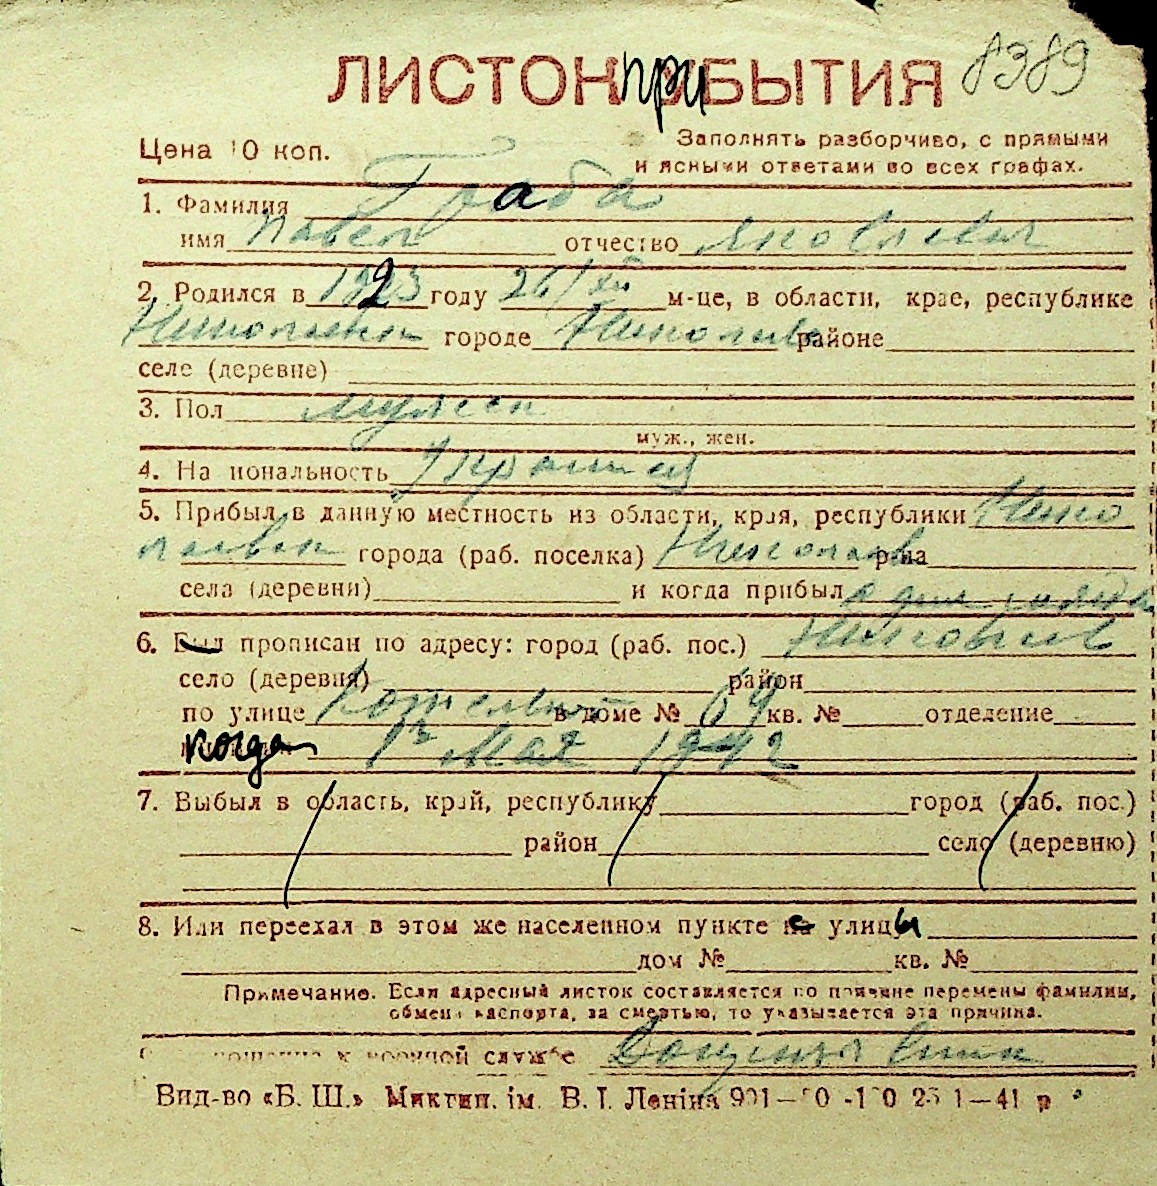 ЛИСТОК ПРИБЫТИЯ 8389
Цена 10 коп.
Заполнять разборчиво, с прямыми
и ясными ответами во всех графах.
1. Фамилия Граба
имя Павел отчество Яковлевич
2. Родился в 1923 году 26/XII м-це, в области, крае, республике
Николаевск городе Николаев районе
селе (деревне)
3. Пол мужск
муж., жен.
4. Национальность Украинец
5. Прибыл в данную местность из области, края, республики Нико
лаевск города (раб. поселка) Николаев р-на
села (деревни) и когда прибыл со дня рожд
6. Был прописан по адресу: город (раб. пос.) Николаев
село (деревня) район
по улице в доме № 64 кв. № отделение
когда 1го Мая 1942
7. Выбыл в область, край, республику город (раб. пос.)
район село (деревню)
8. Или переехал в этом же населенном пункте с улицы
дом № кв. №
Примечание. Если адресный листок составляется по причине перемены фамилии,
обмена паспорта, за смертью, то указывается эта причина.
к военной службе
Вид-во «Б. Ш.» Микгип. ім. В. І. Леніна